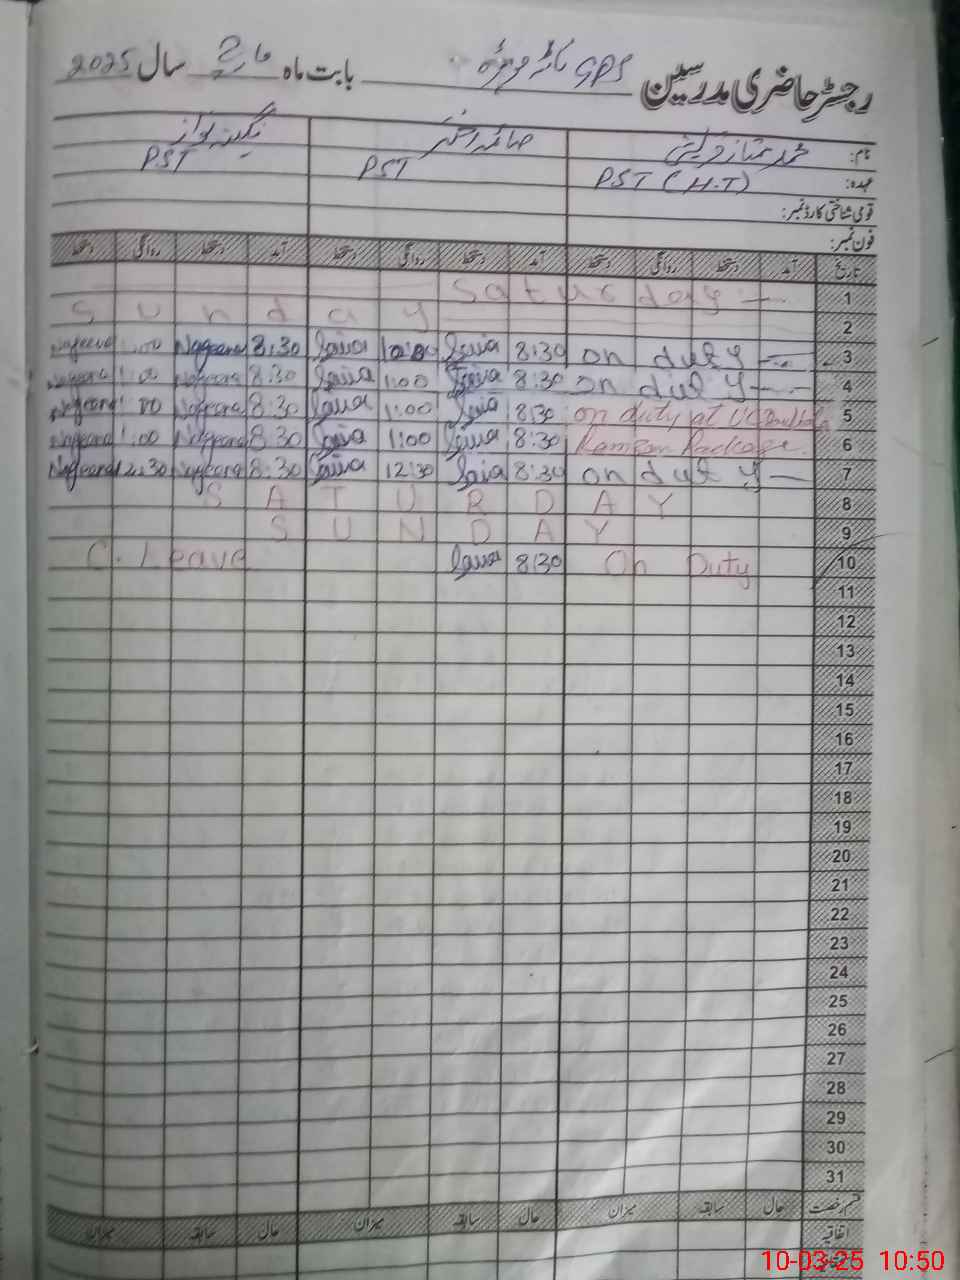 رجسٹر حاضری مدرسین GPS بابت ماہ مارچ سال 2025
نام: محمد ممتاز قریشی صائمہ اختر نگینہ نواز
عہدہ: PST (H.T) PST PST
قومی شناختی کارڈ نمبر:
فون نمبر:
تاریخ آمد دستخط روانگی دستخط آمد دستخط روانگی دستخط آمد دستخط روانگی دستخط
Saturday 1
Sunday 2
Nageena 1:00 Nageena 8:30 Saira Saira 8:30 on duty 3
Nageena 1:00 Nageena 8:30 Saira 1:00 Saira 8:30 on duty 4
Nageena 1:00 Nageena 8:30 Saira 1:00 Saira 8:30 on duty at UC 5
Nageena 1:00 Nageena 8:30 Saira 1:00 Saira 8:30 Ramzan Package. 6
Nageena 12:30 Nageena 8:30 Saira 12:30 Saira 8:30 on duty 7
SATURDAY 8
SUNDAY 9
C. Leave Saira 8:30 On Duty 10
11
12
13
14
15
16
17
18
19
20
21
22
23
24
25
26
27
28
29
30
31
قسم رخصت حال سابقہ میزان حال سابقہ میزان حال سابقہ میزان
اتفاقیہ
10-03-25 10:50